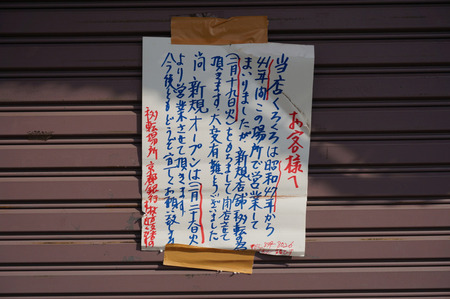 お客様へ
当店くろくろは昭和47年から
44年間この場所で営業して
まいりましたが新規店舗移転為
(一月十九日火)をもちまして閉店させて
頂きます。大変有難うございました
尚、新規オープンは(二月二十三日火)
より営業させて頂きます
今後ともどうぞ宜しくお願い致します
移転場所 京都銀行